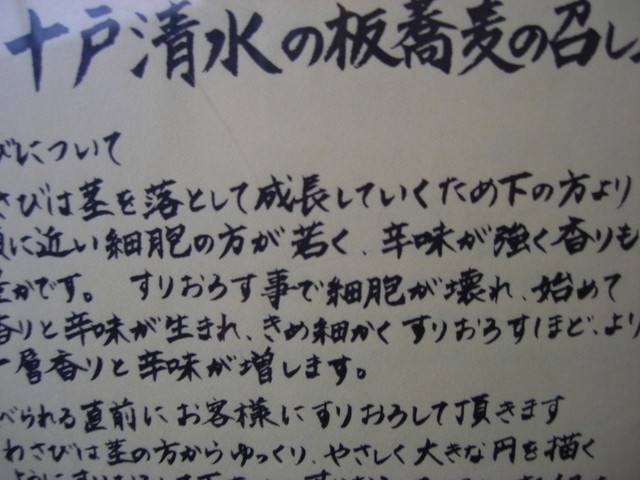 十戸清水の板蕎麦の召し
びについて
さびは茎を落として成長していくため下の方より
に近い細胞の方が若く、辛味が強く香りも
かです。 すりおろす事で細胞が壊れ、始めて
香りと辛味が生まれ、きめ細かくすりおろすほど、より
一層香りと辛味が増します。
べられる直前にお客様にすりおろして頂きます
わさびは茎の方からゆっくり、やさしく大きな円を描く
ようにすりおろして